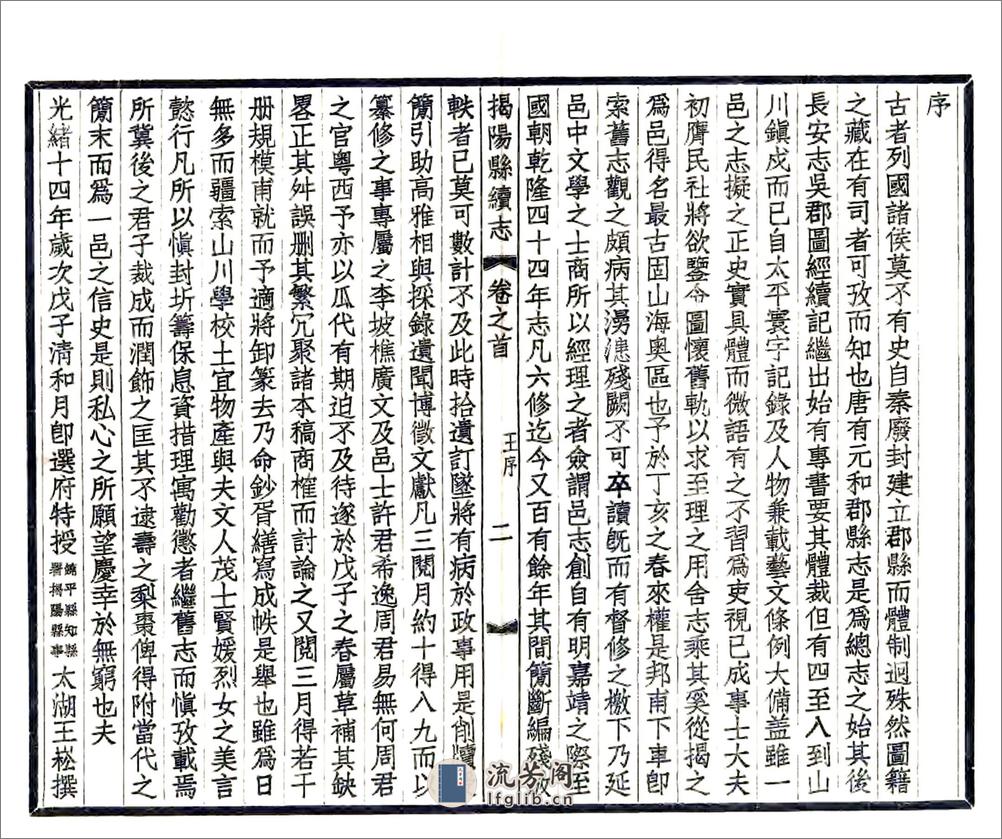 序
古者列國諸侯莫不有史自秦廢封建立郡縣而體制迥殊然圖籍
之藏在有司者可攷而知也唐有元和郡縣志是爲總志之始其後
長安志吳郡圖經續記繼出始有專書要其體裁但有四至入到山
川鎭戍而已自太平寰宇記錄及人物兼載藝文條例大備盖雖一
邑之志擬之正史實具體而微語有之不習爲吏視已成事士大夫
初膺民社將欲鑒今圖懷舊軌以求至理之用舍志乘其奚從揭之
爲邑得名最古固山海奥區也予於丁亥之春來權是邦甫下車卽
索舊志觀之頗病其漫漶殘闕不可卒讀旣而有督修之檄下乃延
邑中文學之士商所以經理之者僉謂邑志創自有明嘉靖之際至
國朝乾隆四十四年志凡六修迄今又百有餘年其間簡斷編殘放
揭陽縣續志
卷之首
王序
二
軼者已莫可數計不及此時拾遺訂墜將有病於政事用是削牘
簡引助高雅相與採錄遺聞博徵文獻凡三閱月約十得八九而以
纂修之事專屬之李坡樵廣文及邑士許君希逸周君易無何周君
之官粤西予亦以瓜代有期迫不及待遂於戊子之春屬草補其缺
畧正其舛誤删其繁冗聚諸本稿商榷而討論之又閱三月得若干
册規模甫就而予適將卸篆去乃命鈔胥繕寫成帙是舉也雖爲日
無多而疆索山川學校土宜物產與夫文人茂士賢媛烈女之美言
懿行凡所以愼封圻籌保息資措理寓勸懲者繼舊志而愼攷載焉
所冀後之君子裁成而潤飾之匡其不逮壽之梨棗俾得附當代之
簡末而爲一邑之信史是則私心之所願望慶幸於無窮也夫
光緒十四年歲次戊子清和月卽選府特授饒平縣知縣署揭陽縣事太湖王崧撰
流芳阁
lfglib.cn